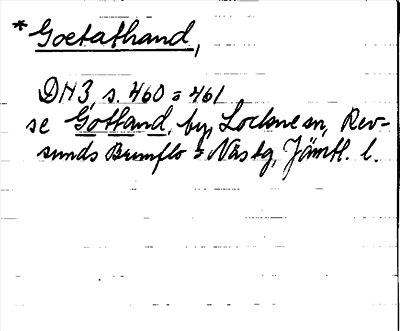 * Goetathand,
DN3, s. 460 = 461
se Gottand, by, Lockne sn, Rev-
sunds Brunflo = Näs tg, Jämtl. l.